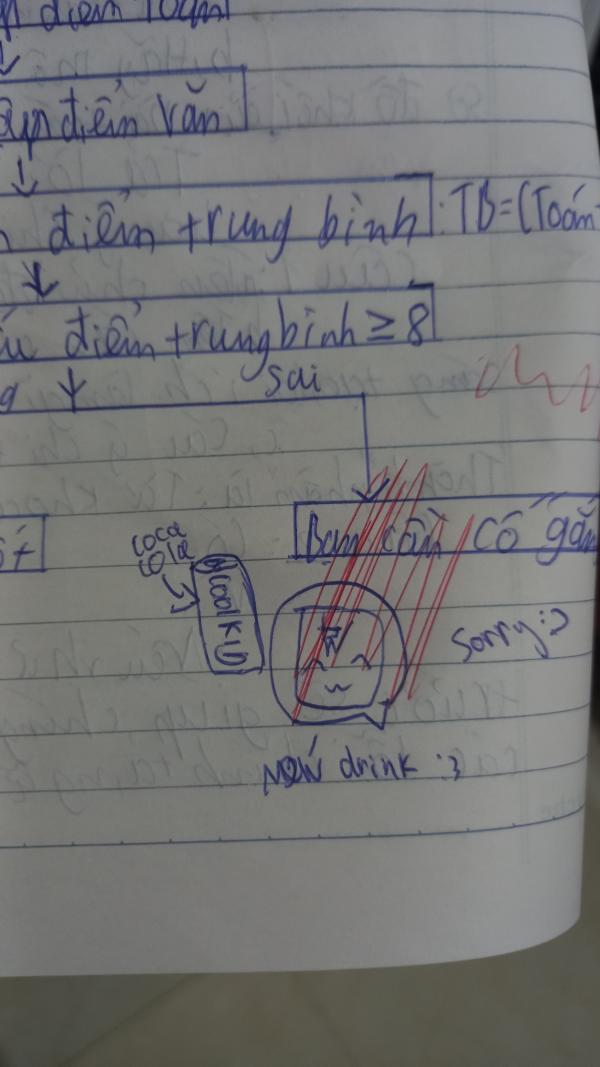 điểm Toán
điểm Văn
điểm trung bình : TB = (Toán
điểm trung bình ≥ 8
sai
Bạn cần cố gắn
coca
cola
coolKid
sorry :>
New drink :3